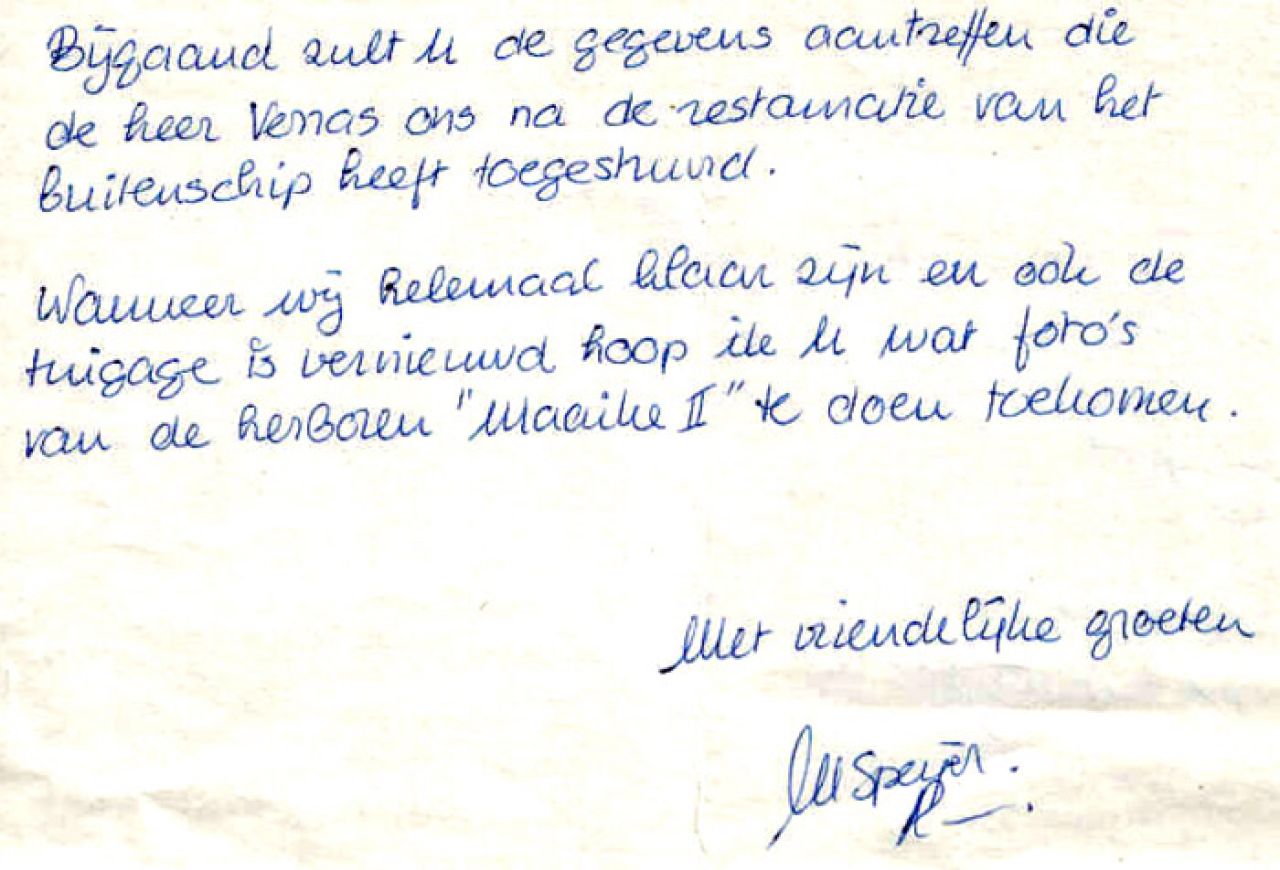 Bijgaand zult U de gegevens aantreffen die
de heer Verras ons na de restauratie van het
buitenschip heeft toegestuurd.
Wanneer wij helemaal klaar zijn en ook de
tuigage is vernieuwd hoop ik U wat foto's
van de herboren "Maaike II" te doen toekomen.
Met vriendelijke groeten